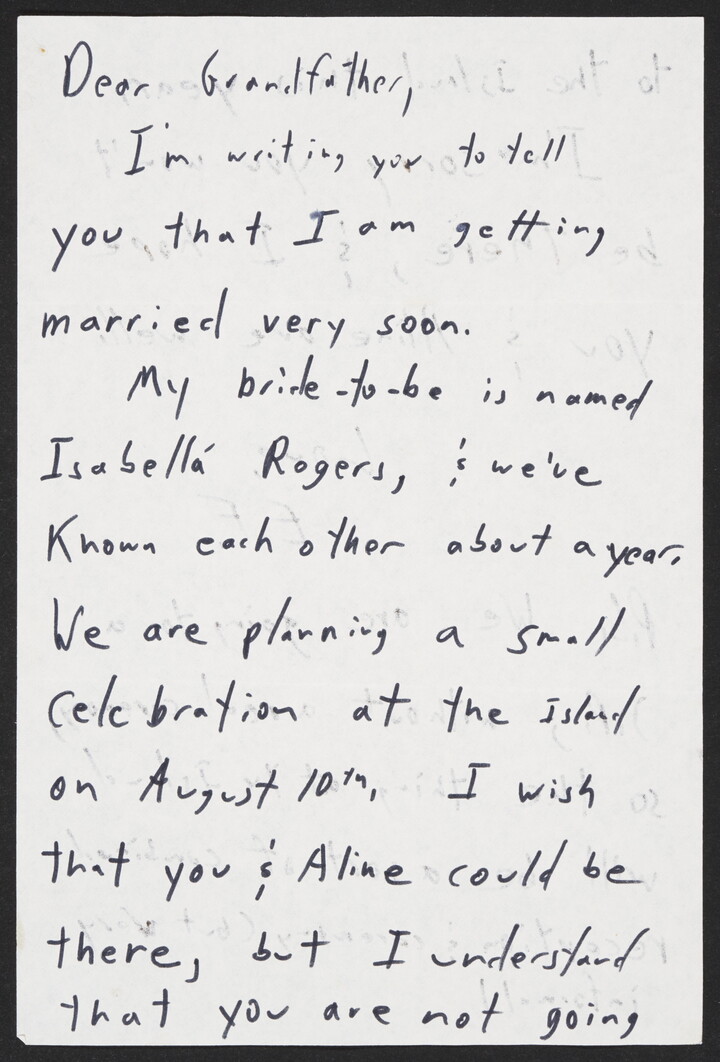 Dear Grandfather,
I'm writing you to tell
you that I am getting
married very soon.
My bride-to-be is named
Isabellá Rogers, & we've
Known each other about a year.
We are planning a small
celebration at the island
on August 10th. I wish
that you & Aline could be
there, but I understand
that you are not going